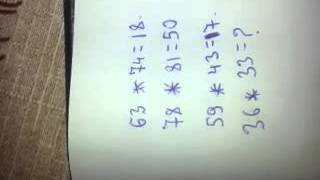 63 * 74 = 18.
78 * 81 = 50
59 * 43 = 17.
36 * 33 = ?